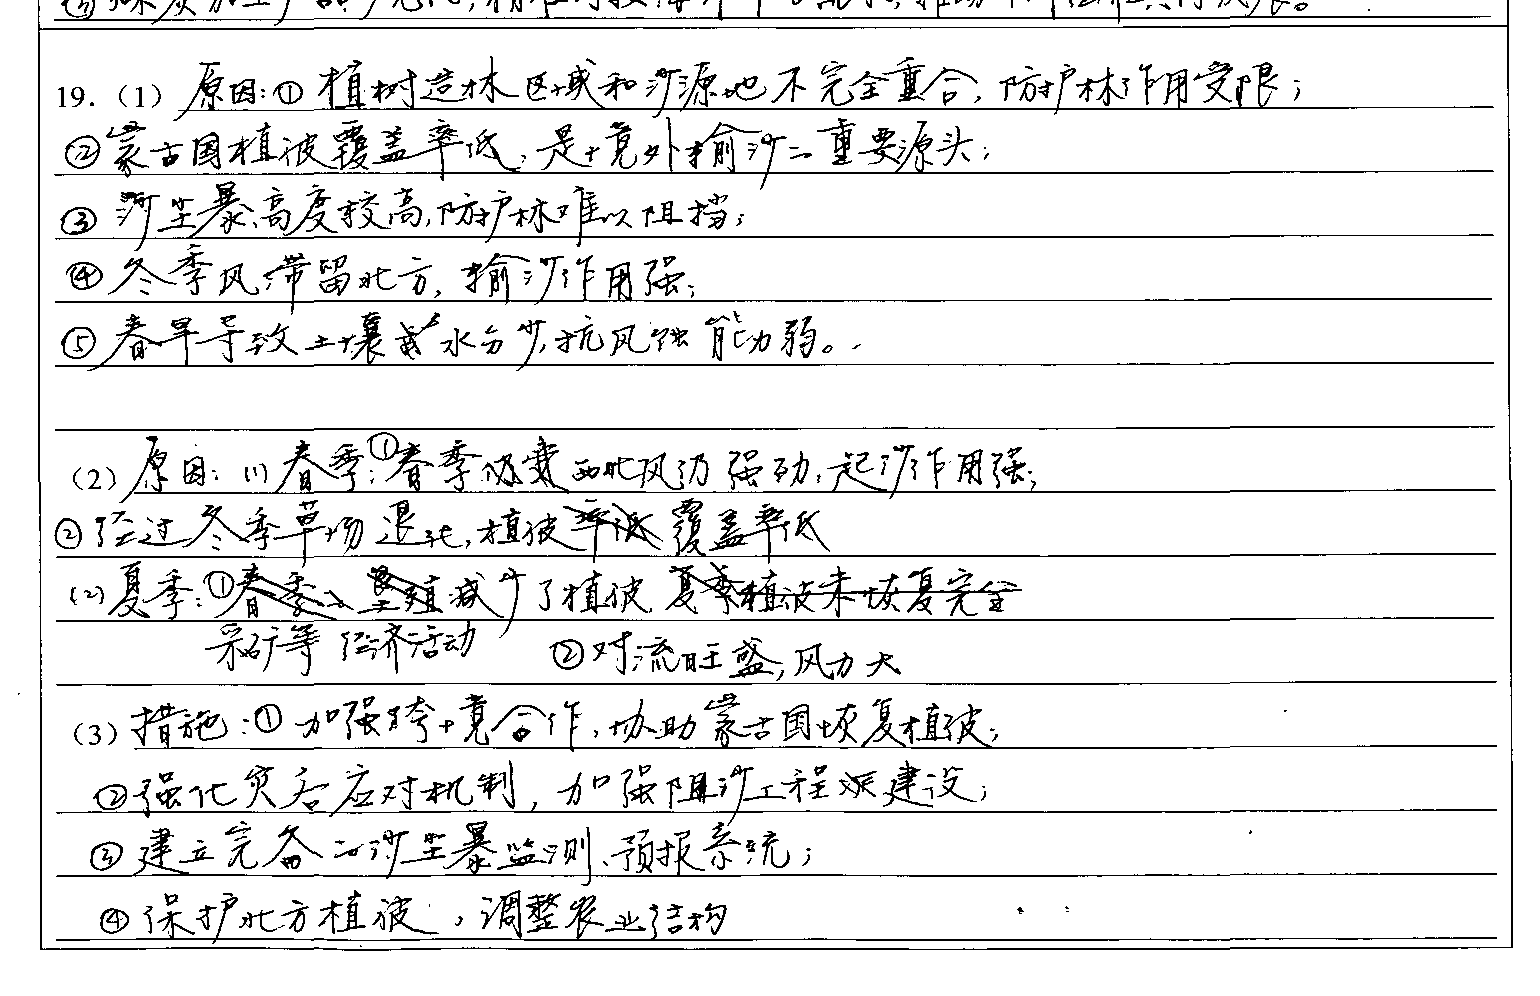 19.(1) 原因:① 植树造林区域和沙源地不完全重合,防护林作用受限;
②蒙古国植被覆盖率低,是境外输沙的重要源头;
③ 沙尘暴高度较高,防护林难以阻挡;
④ 冬季风滞留北方,输沙作用强;
⑤ 春旱导致土壤水分少,抗风蚀能力弱。
(2) 原因: (1) 春季:①春季西北风仍强劲,起沙作用强;
②经过冬季草场退化,植被覆盖率低
(2)夏季:①采矿等经济活动减少了植被
②对流旺盛,风力大
(3)措施:①加强跨境合作,协助蒙古国恢复植被;
②强化灾害应对机制,加强阻沙工程建设;
③建立完备的沙尘暴监测、预报系统;
④保护北方植被,调整农业结构